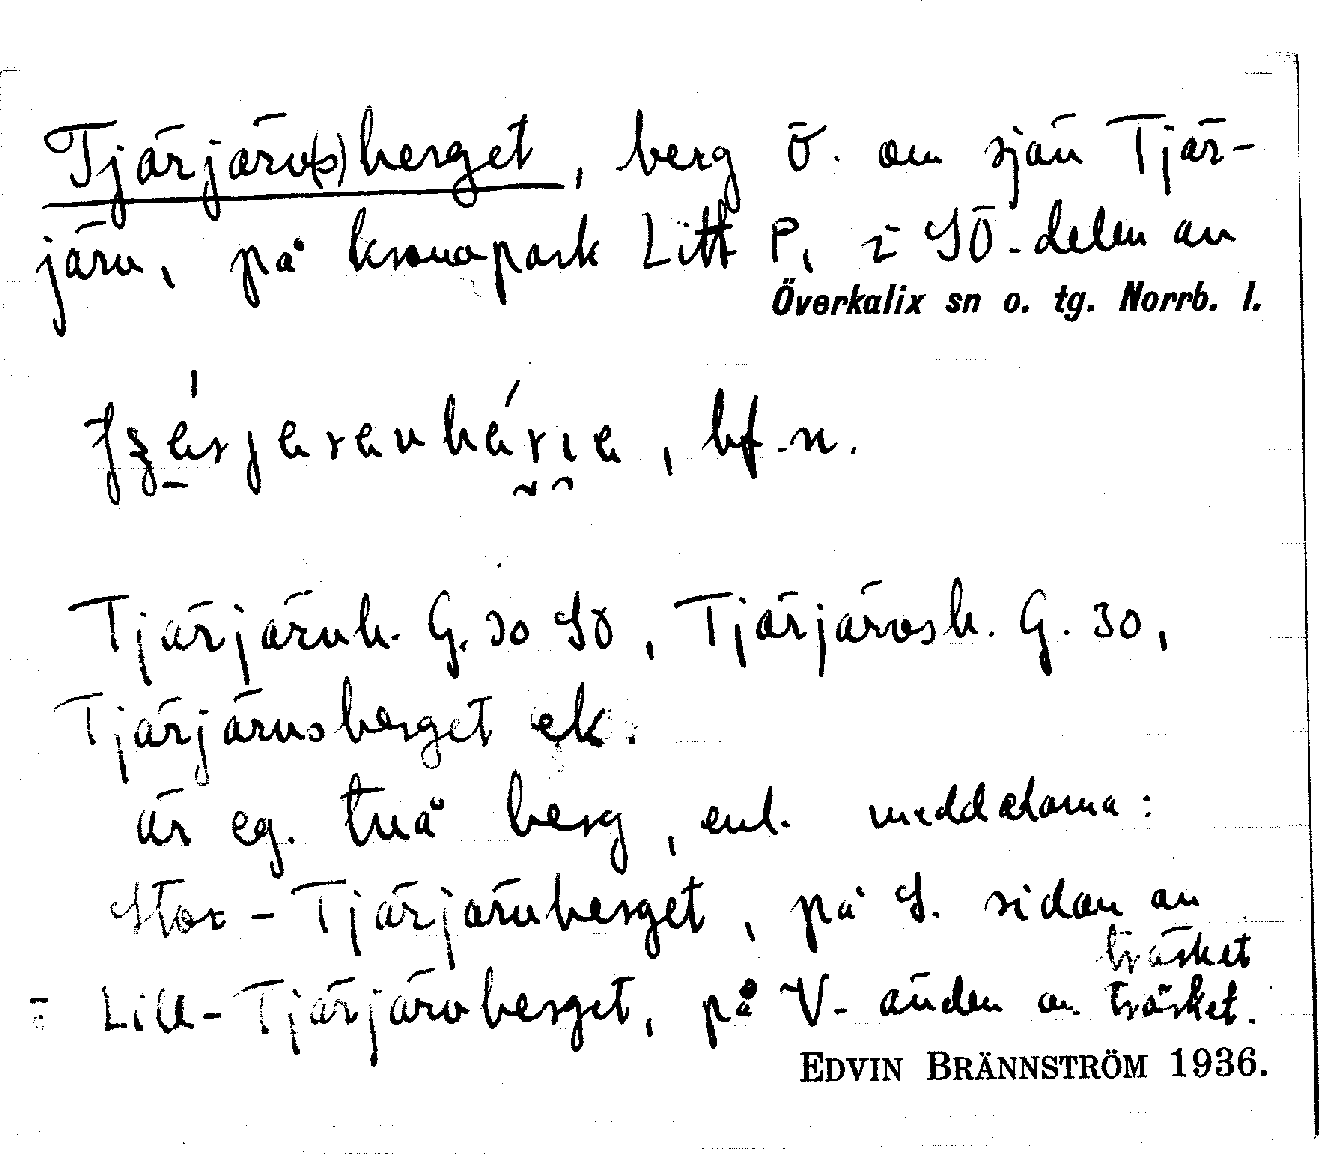 Tjärjärv(s)berget, berg Ö. om sjön Tjär-
järv, på kronopark Litt P, i SÖ-delen av
Överkalix sn o. tg. Norrb. l.
bf. n.
Tjärjärvb. G. 30 SÖ, Tjärjärvsb. G. 30,
Tjärjärvsberget ek.
är eg. två berg, enl. meddelarna:
Stor-Tjärjärvberget, på S. sidan av
träsket
Lill-Tjärjärvberget, på V- änden av träsket.
EDVIN BRÄNNSTRÖM 1936.